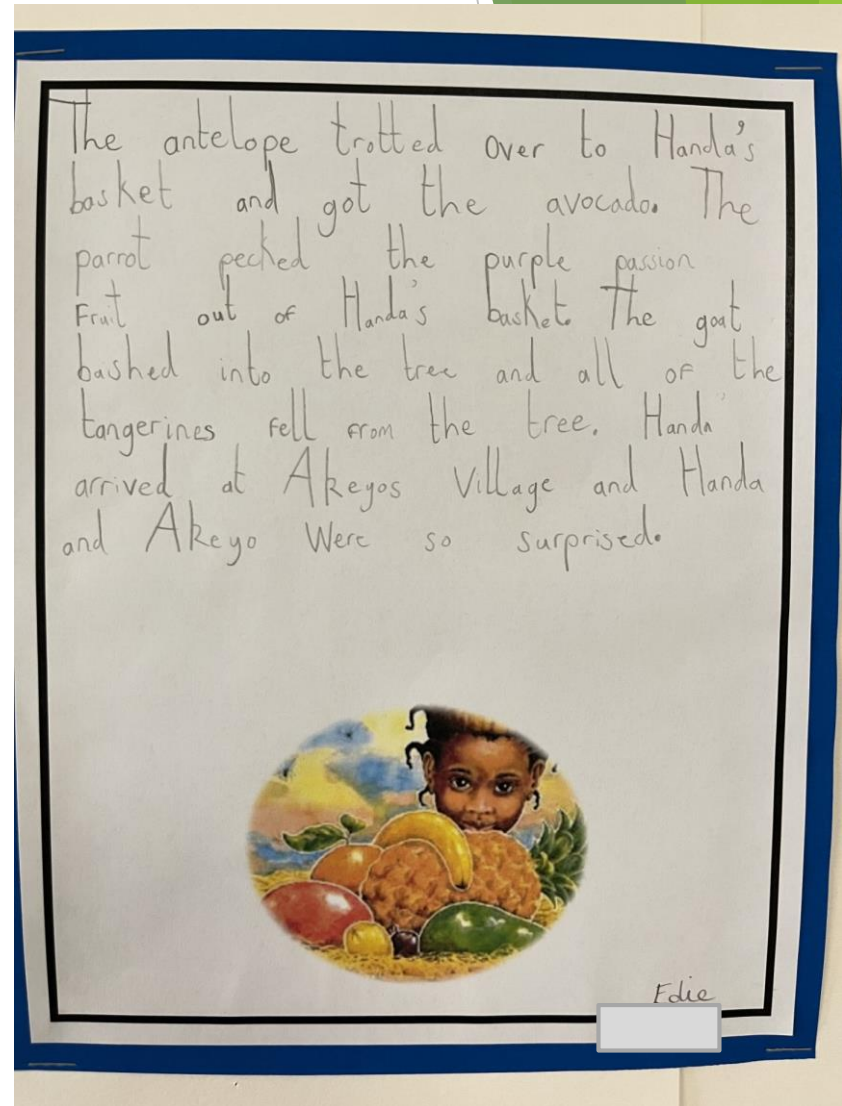 The antelope trotted over to Handa's
basket and got the avocado. The
parrot pecked the purple passion
Fruit out of Handa's basket. The goat
bashed into the tree and all of the
tangerines fell from the tree. Handa
arrived at Akeyos Village and Handa
and Akeyo Were so surprised.
Edie